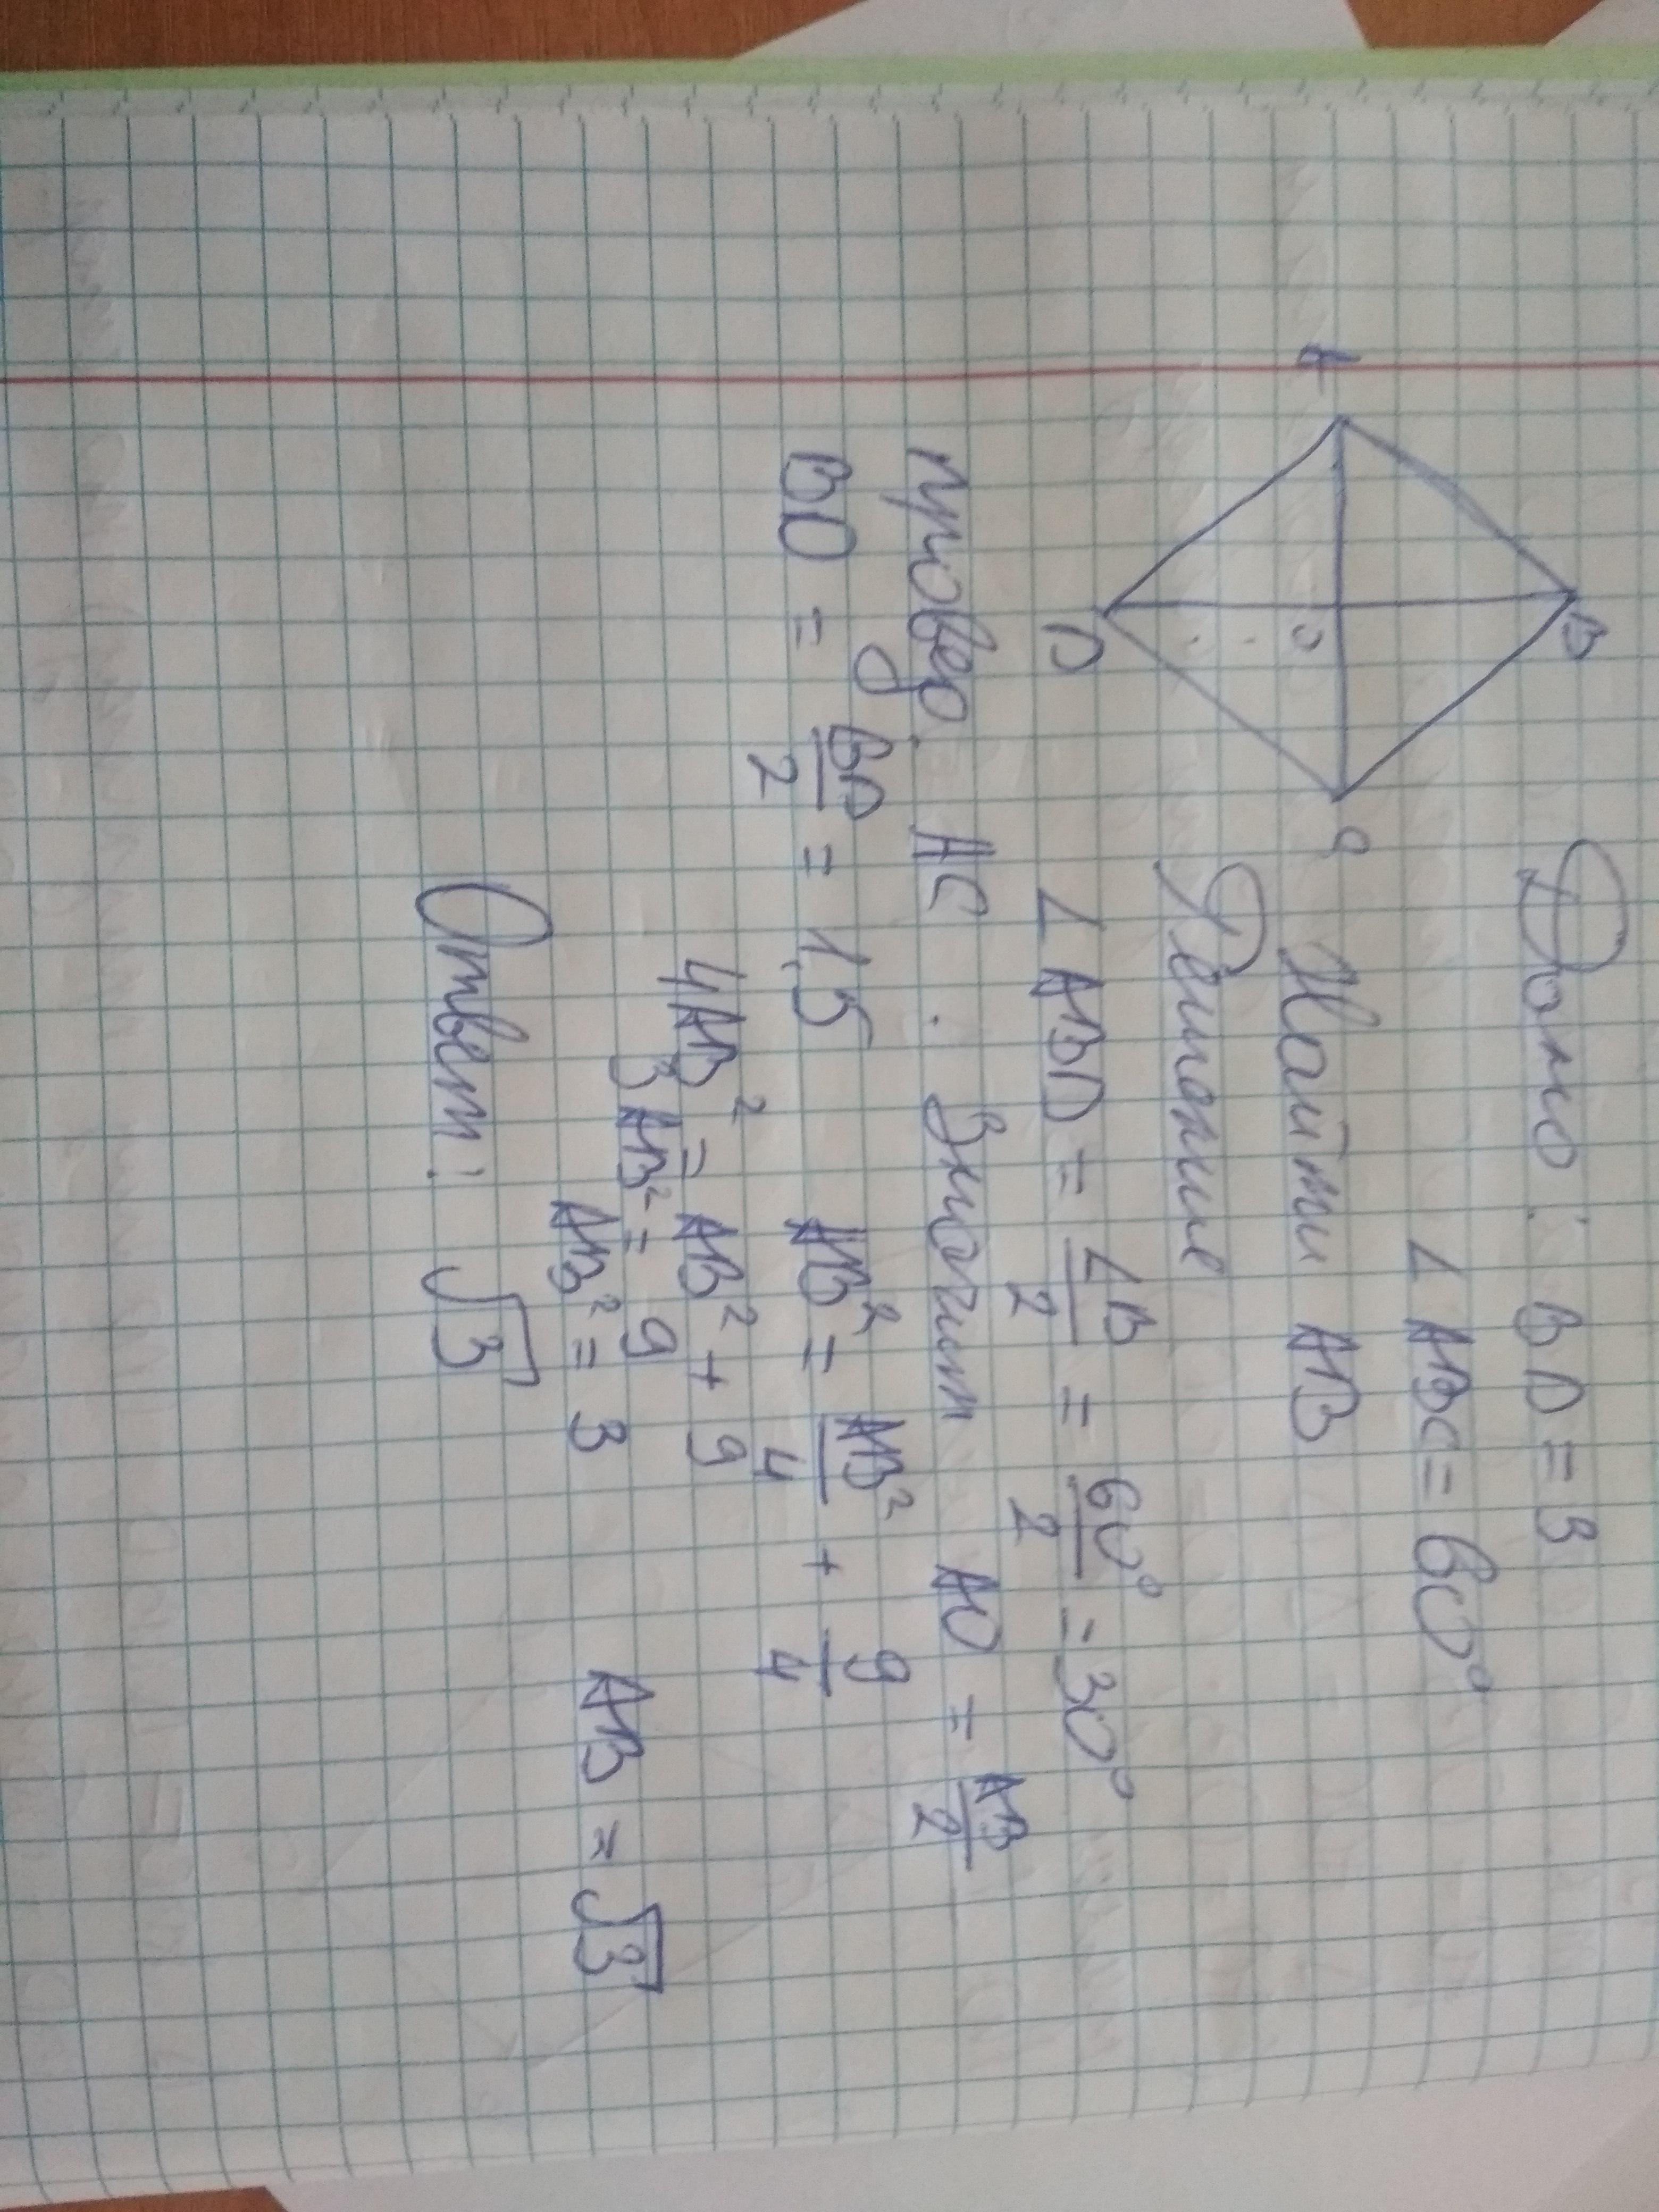 Дано: BD = 3
∠ ABC = 60°
Найти AB
Решение
∠ ABD = ∠B/2 = 60°/2 = 30°
провед. AC. Значит AO = AB/2
BO = BD/2 = 1,5 AB² = AB²/4 + 9/4
4AB² = AB² + 9
3AB² = 9
AB² = 3 AB = √3
Ответ: √3
A
B
C
D
O